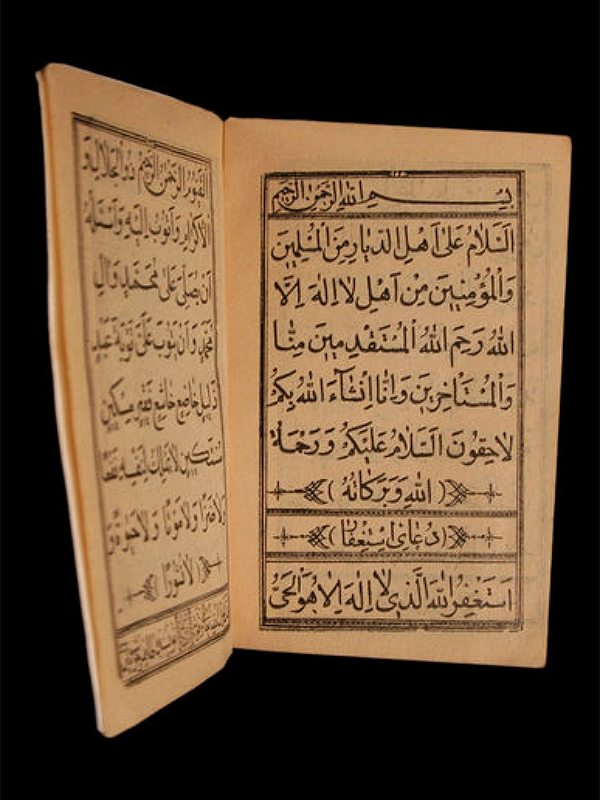 بِسْمِ اللهِ الرَّحْمٰنِ الرَّحیمِ
اَلسَّلامُ عَلیٰ اَهْلِ الدِّیٰارِ مِنَ الْمُسْلِمینَ
وَالْمُؤْمِنینَ مِنْ اَهْلِ لا اِلٰهَ اِلَّا
اللهُ وَرَحِمَ اللهُ الْمُسْتَقْدِمینَ مِنّٰا
وَالْمُسْتَاْخِرینَ وَاِنّٰا اِنْشٰاءَ اللهُ بِکُمْ
لاحِقُونَ اَلسَّلامُ عَلَیْکُمْ وَرَحْمَةُ
(اللهِ وَبَرَکاتُهُ)
(دُعٰای اِسْتِغْفٰار)
اَسْتَغْفِرُ اللهَ الَّذی لا اِلٰهَ اِلاّٰ هُوَ الْحَیُّ
الْقَیُّومُ الرَّحْمٰنُ الرَّحیمُ ذُو الْجَلالِ وَ
الْاِکْرامِ وَاَتُوبُ اِلَیْهِ وَاَسْئَلُهُ
اَنْ یُصَلِّیَ عَلیٰ مُحَمَّدٍ وَالِ
مُحَمَّدٍ وَاَنْ یَتُوبَ عَلَیَّ تَوْبَةَ عَبْدٍ
ذَلیلٍ خاضِعٍ خاشِعٍ فَقیرٍ مِسْکینٍ
مُسْتَکینٍ لا یَمْلِکُ لِنَفْسِهِ نَفْعًا
وَلا ضَرًّا وَلا مَوْتًا وَلا حَیٰوةً وَ
(لا نُشُورًا)